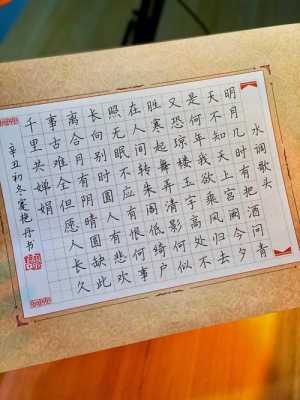 水调歌头
明月几时有把酒问青
天不知天上宫阙今夕
是何年我欲乘风归去
又恐琼楼玉宇高处不
胜寒起舞弄清影何似
在人间转朱阁低绮户
照无眠不应有恨何事
长向别时圆人有悲欢
离合月有阴晴圆缺此
事古难全但愿人长久
千里共婵娟
辛丑初冬艳丹书